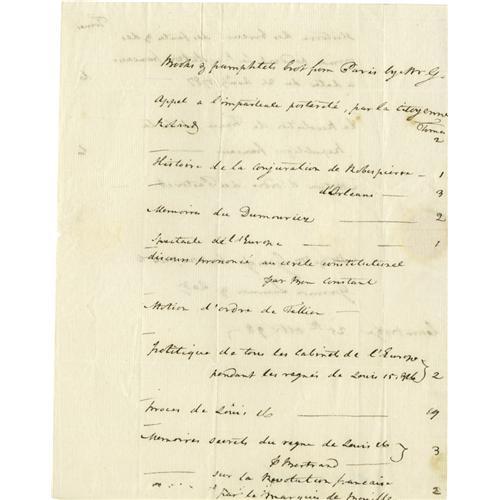 Books & pamphlets brot from Paris by Mr G.
Appel a l'impartiale posterité, par la Citoyenne
Roland
Tomes
2
Histoire de la conjuration de Robespierre — 1
d'Orleans — 3
Memoires du Dumouriez — 2
Spectacle de l'Europe — 1
discours prononcé au cercle constitutionel
par Ben Constant
Motion d'ordre de Tallien
politique de tous les cabinets de l'Europe
pendant les regnes de Louis 15. &16 } 2
proces de Louis 16 — 
Memoires secrets du regne de Louis 16
p Bertrand — } 3
sur la Revolution francaise
par le marquis de 2